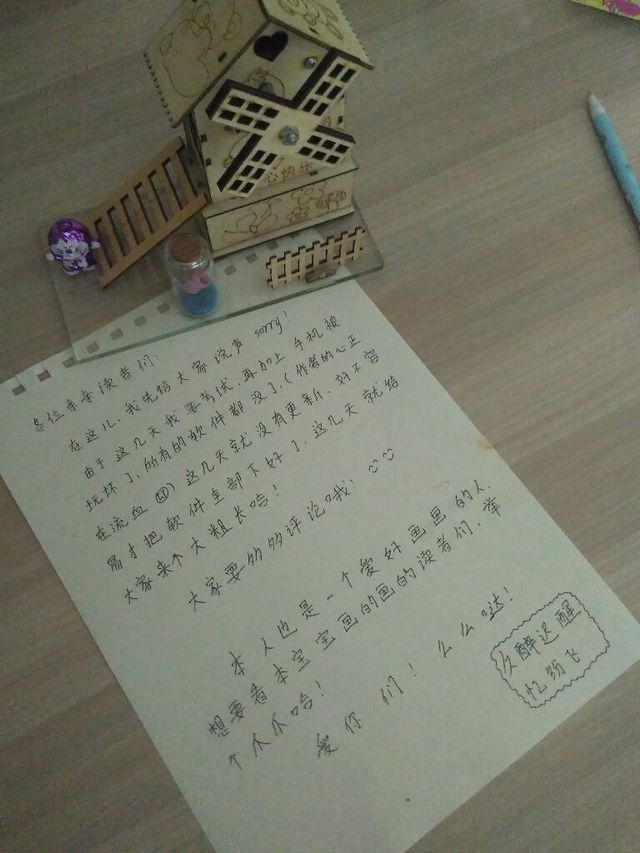 心快乐
各位亲亲读者们:
在这儿,我先给大家说声 sorry!
由于这几天我要考试,再加上手机被
玩坏了,所有的软件都没了,(作者的心正
在流血)这几天就没有更新,好不容
易才把软件全部下好了,这几天就给
大家来个大粗长哈!
大家要多多评论哦!
本人也是一个爱好画画的人,
想要看本宝宝画的画的读者们,举
个爪爪哈!
爱你们!么么哒!
久醉迟醒
忆纷飞